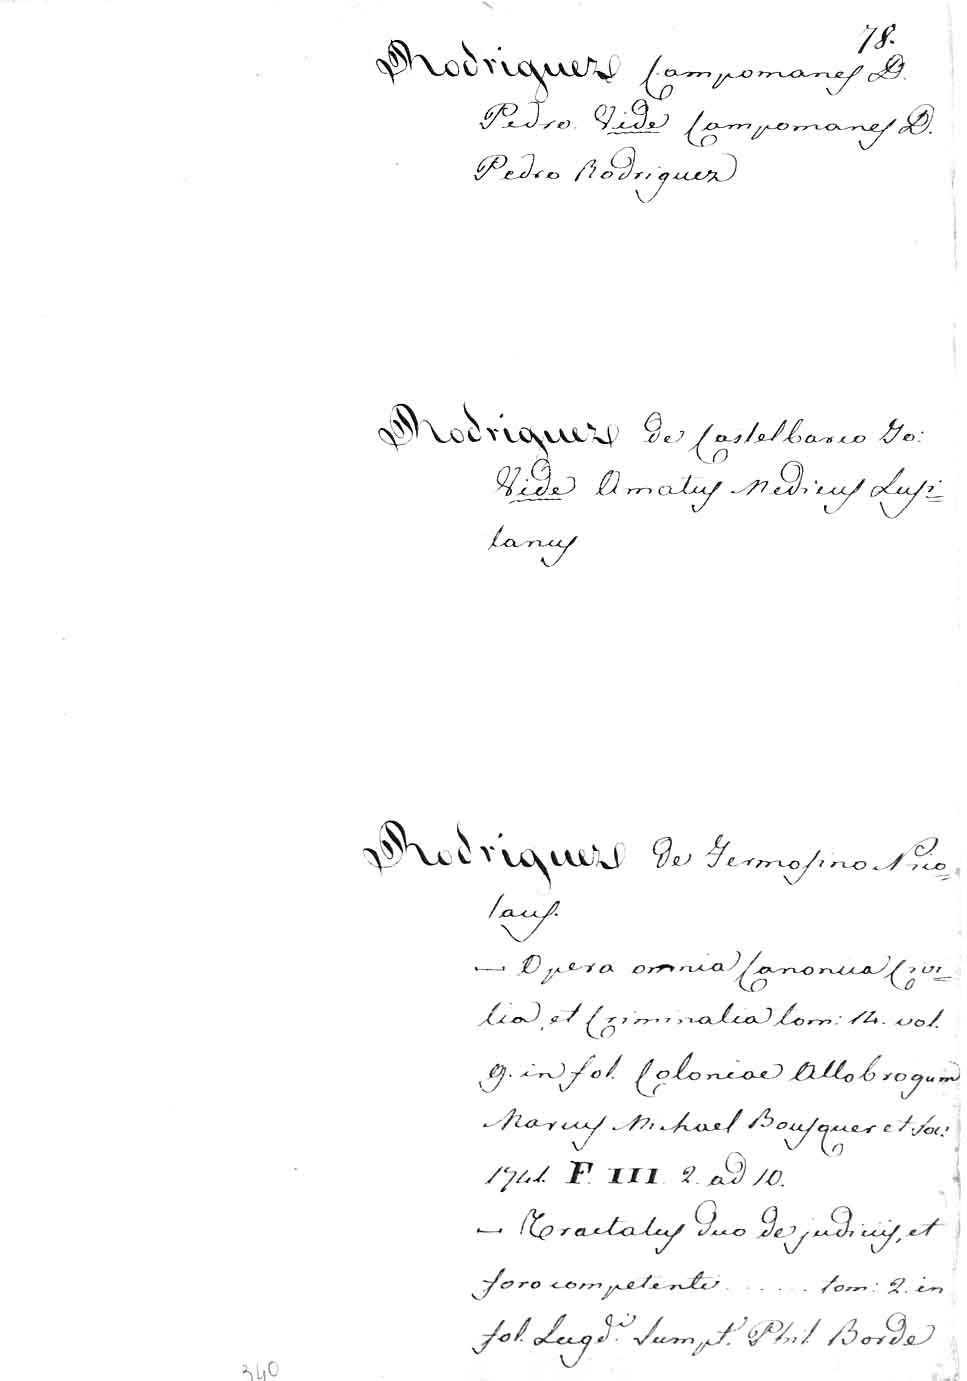 78.
Rodriguez Campomanes D.
Pedro. Vide Campomanes D.
Pedro Rodriguez
Rodriguez de Castelbarco Jo:
Vide Amatus Medicus Lusi=
tanus
Rodriguez de Fermosino Nico=
laus.
— Opera omnia Canonica Civi=
lia, et Criminalia tom: 14. vol.
9. in fol. Coloniae Allobrogum
Marcus Michael Bousquet et Soc:
1741. F. III. 2. ad 10.
— Tractatus duo de judiciis, et
foro competenti ...... tom: 2. in
fol. Lugdi. Sumpt. Phil. Borde
340